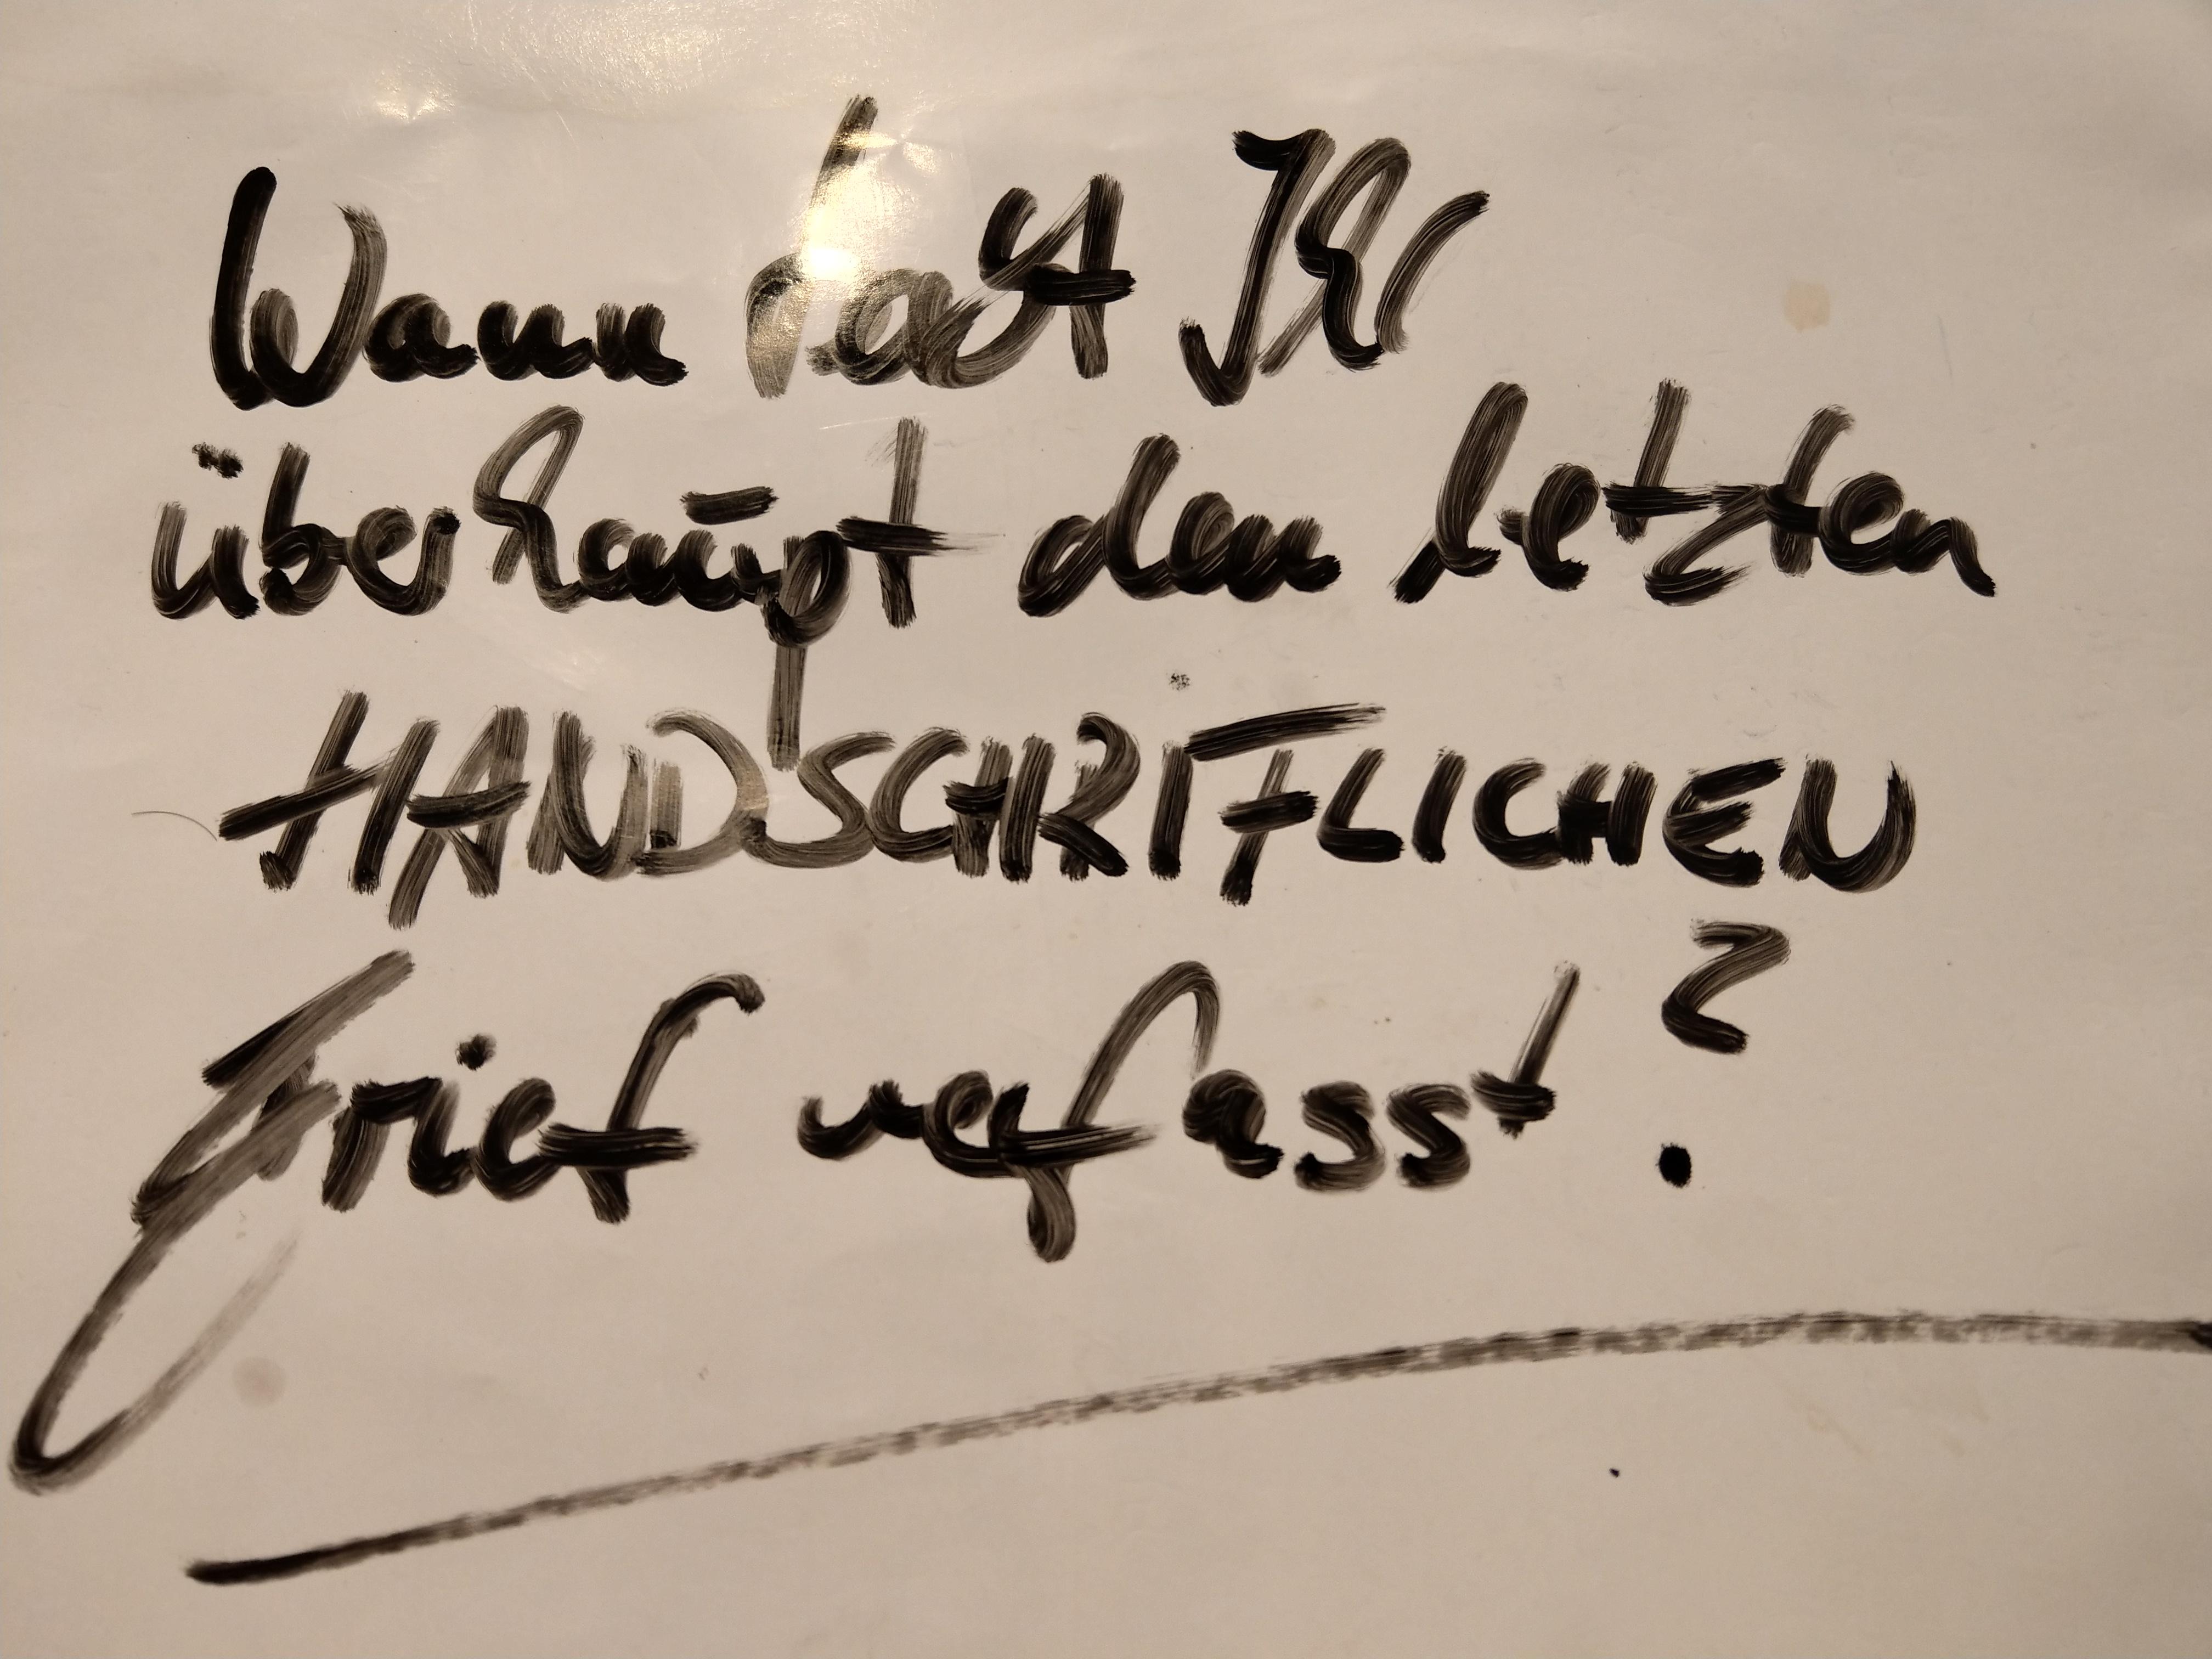 Wann habt Ihr
überhaupt den letzten
HANDSCHRIFTLICHEN
Brief verfasst?